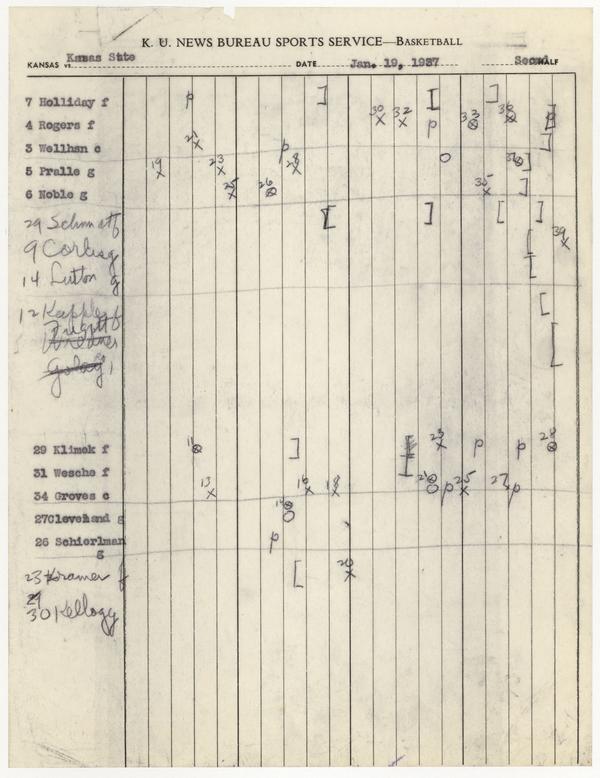 K. U. NEWS BUREAU SPORTS SERVICE—BASKETBALL
KANSAS vs. Kansas State DATE Jan. 19, 1937 Second HALF
7 Holliday f p ] I ]
4 Rogers f 30 x 32 x p 33 38 p
3 Wellhan c 21 x p ]
5 Pralle g 19 x 23 x 28 x O ]
6 Noble g 25 x 26 35 x ]
29 Schmidt f [ ] [ ]
9 Corlis g [ 39 x
14 Lutton g [
12 Kappler f [
Golay
29 Klimek f 11 ] 23 x p p 28
31 Wesche f
34 Groves c 13 x 16 x 18 x O p 25 x 27 x p
27Cleveland g O
26 Schierlman g p
23 Kramer f [ 20 x
30 Kellogg